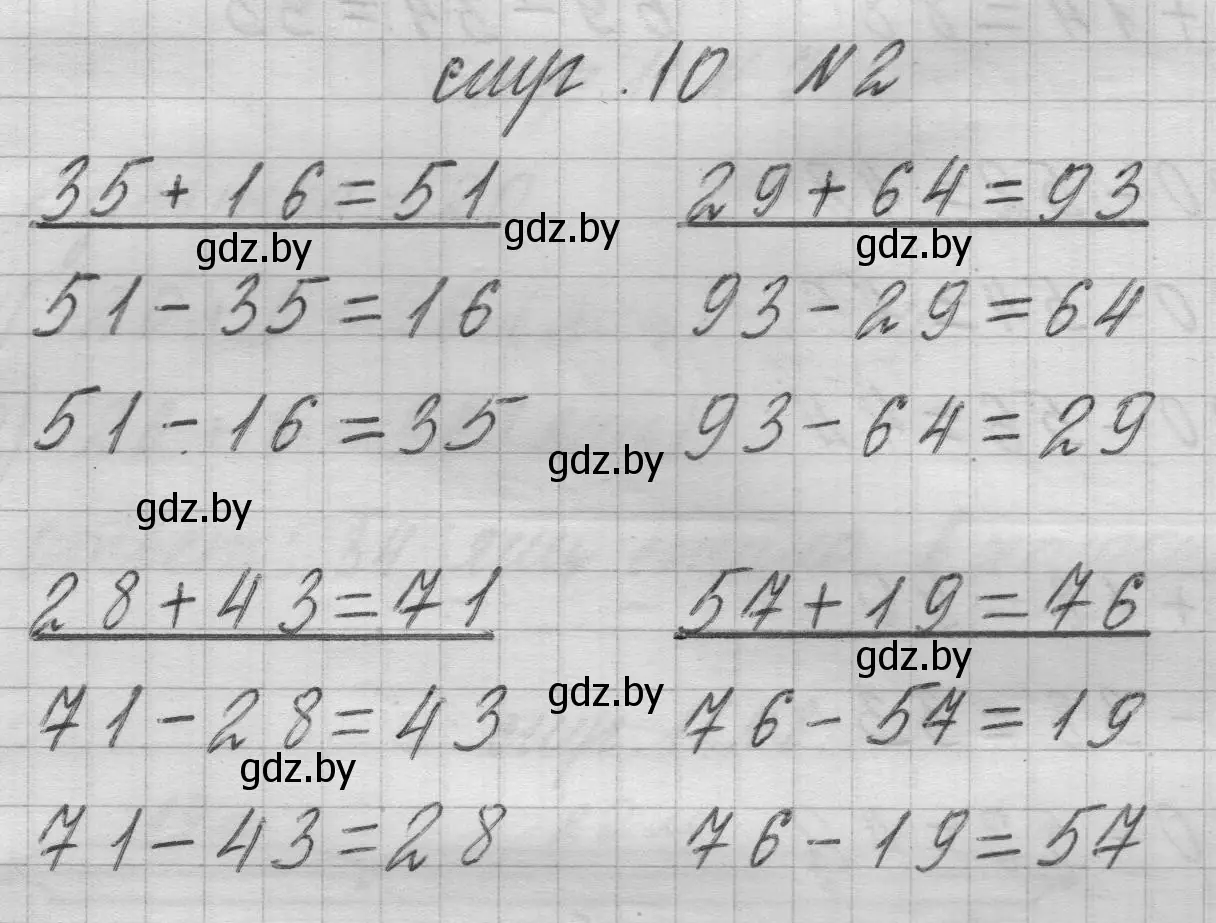 стр. 10 №2
35 + 16 = 51 29 + 64 = 93
gdz.by gdz.by gdz.by
51 - 35 = 16 93 - 29 = 64
51 - 16 = 35 93 - 64 = 29
gdz.by
gdz.by
28 + 43 = 71 57 + 19 = 76
gdz.by
gdz.by
71 - 28 = 43 76 - 57 = 19
gdz.by
71 - 43 = 28 76 - 19 = 57